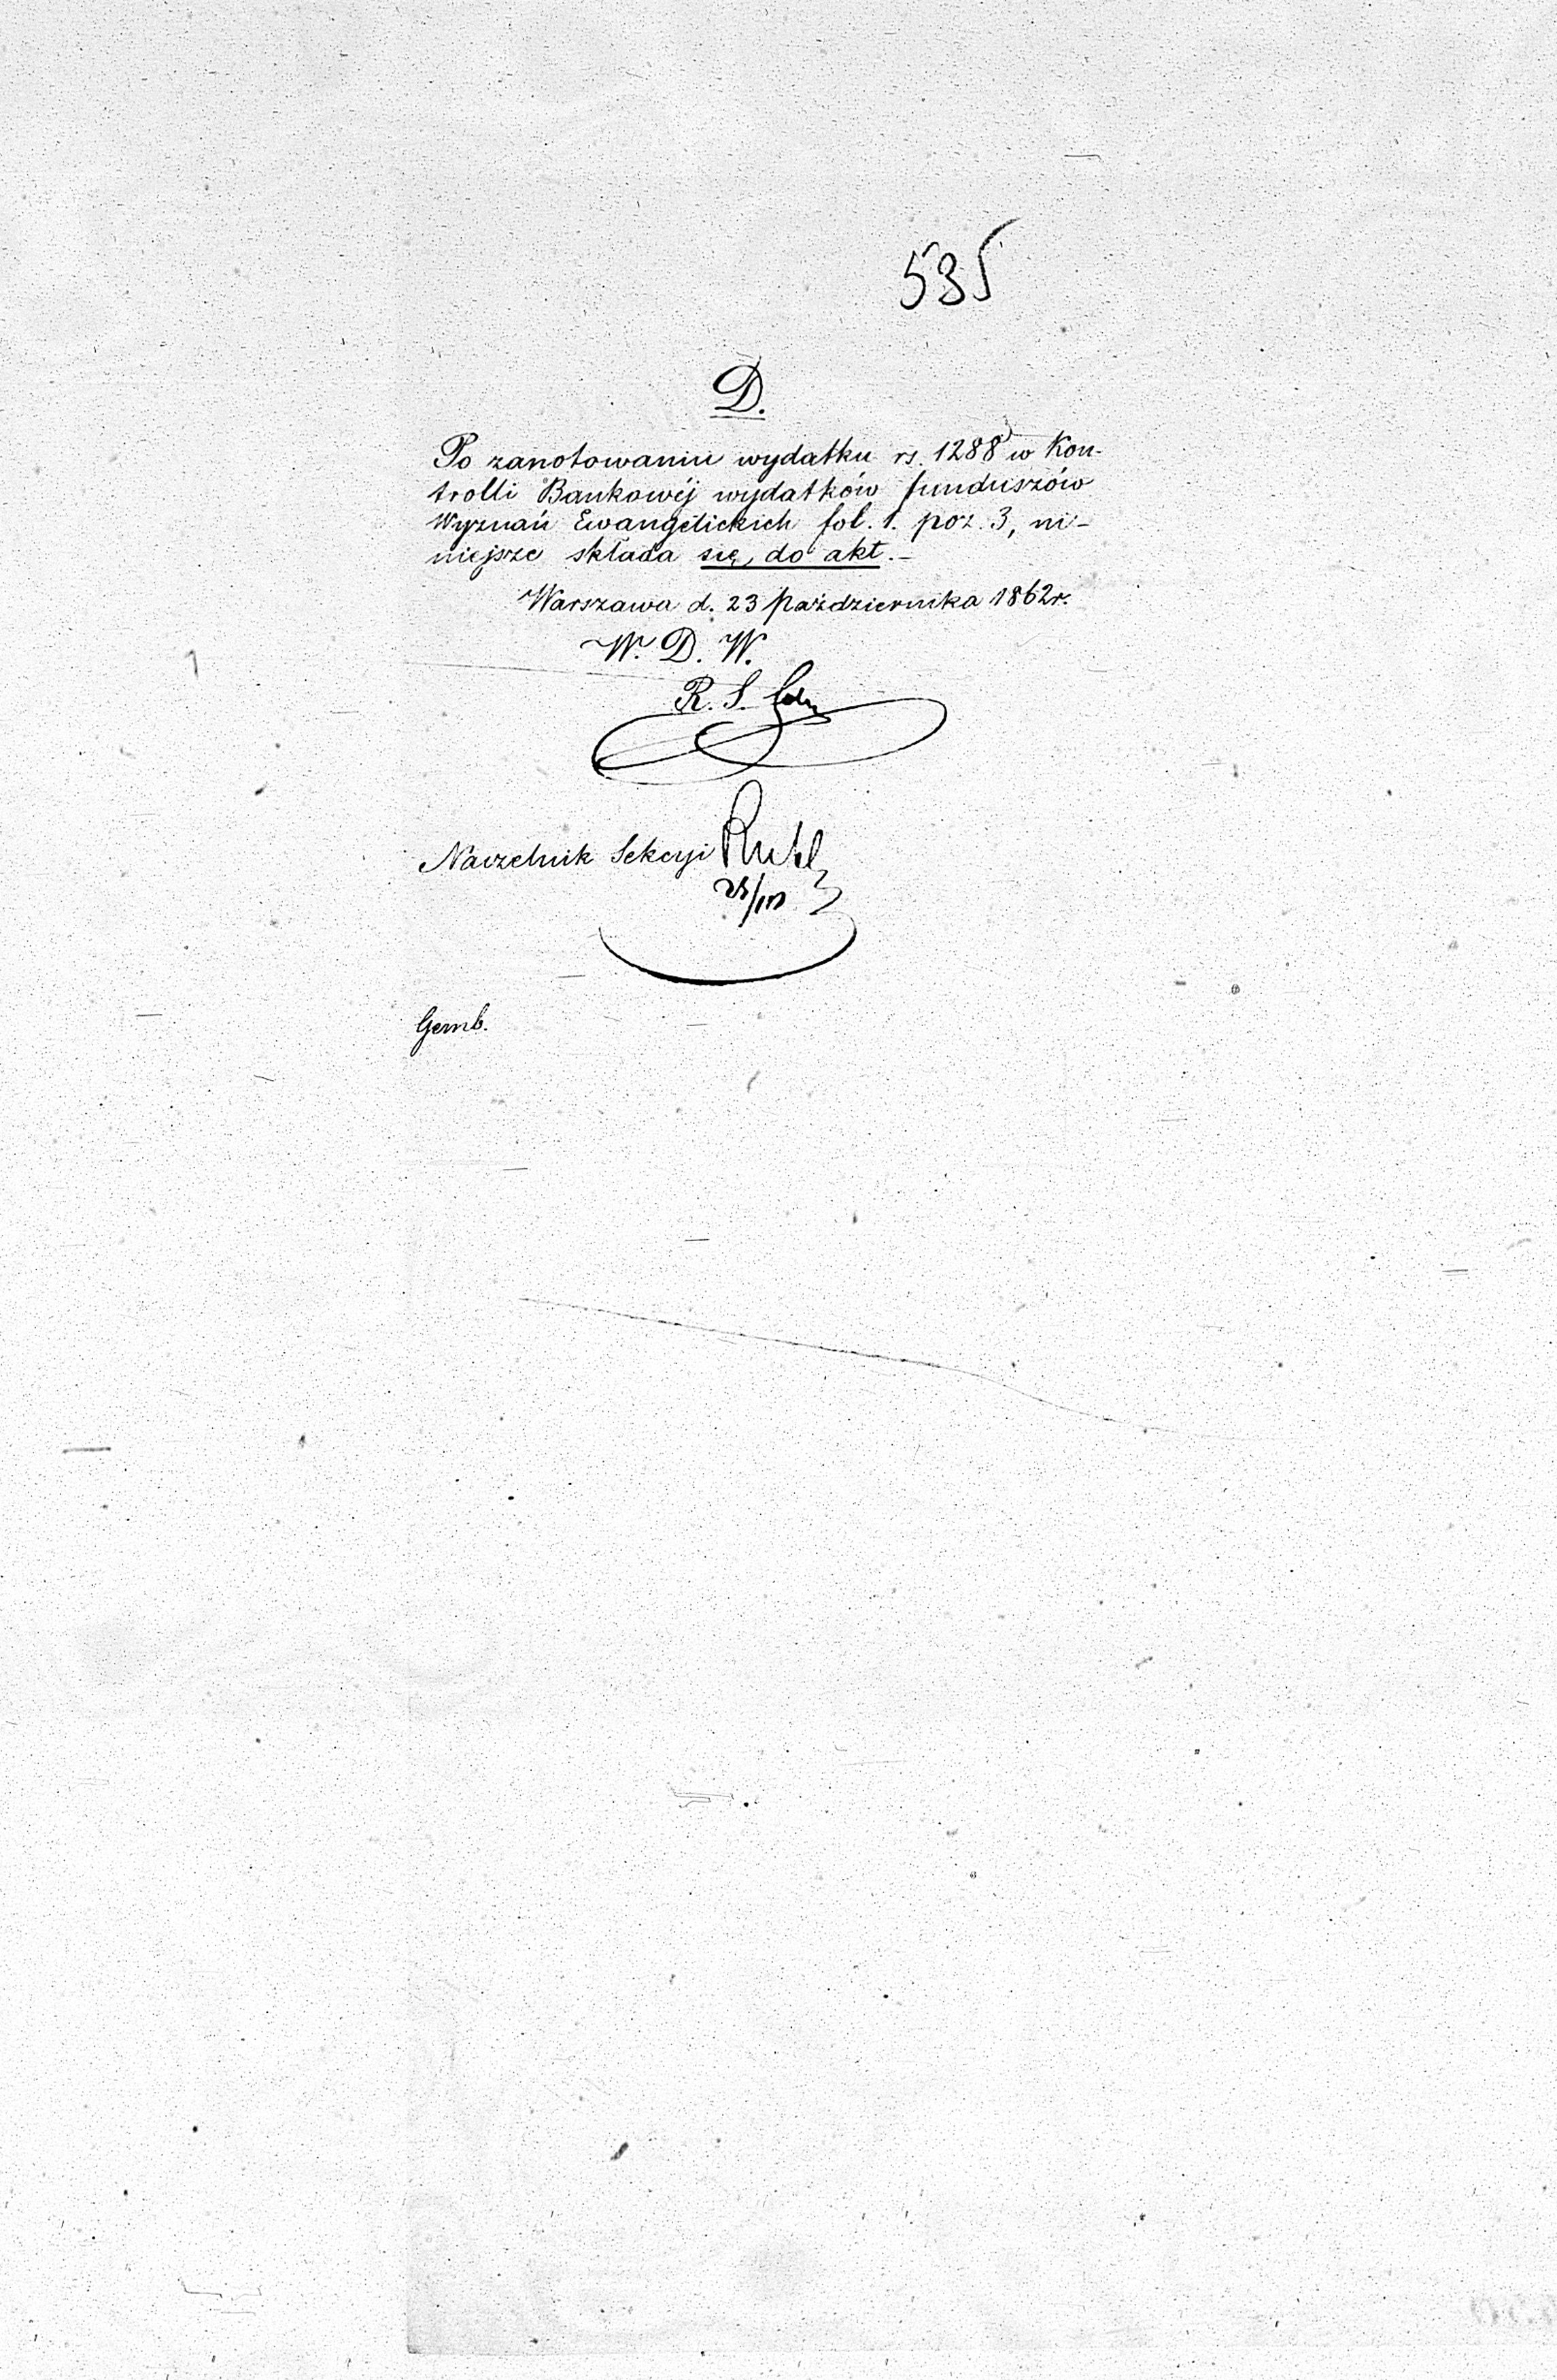 535
D.
Po zanotowaniu wydatku rs. 1288 w Kon-
trolli Bankowéj wydatków funduszów
Wyznań Ewangelickich fol. 1. poz. 3, ni-
niejsze składa się do akt.-
Warszawa d. 23 Października 1862r.
W. D. W.
R. S.
Naczelnik Sekcyi
Gemb.